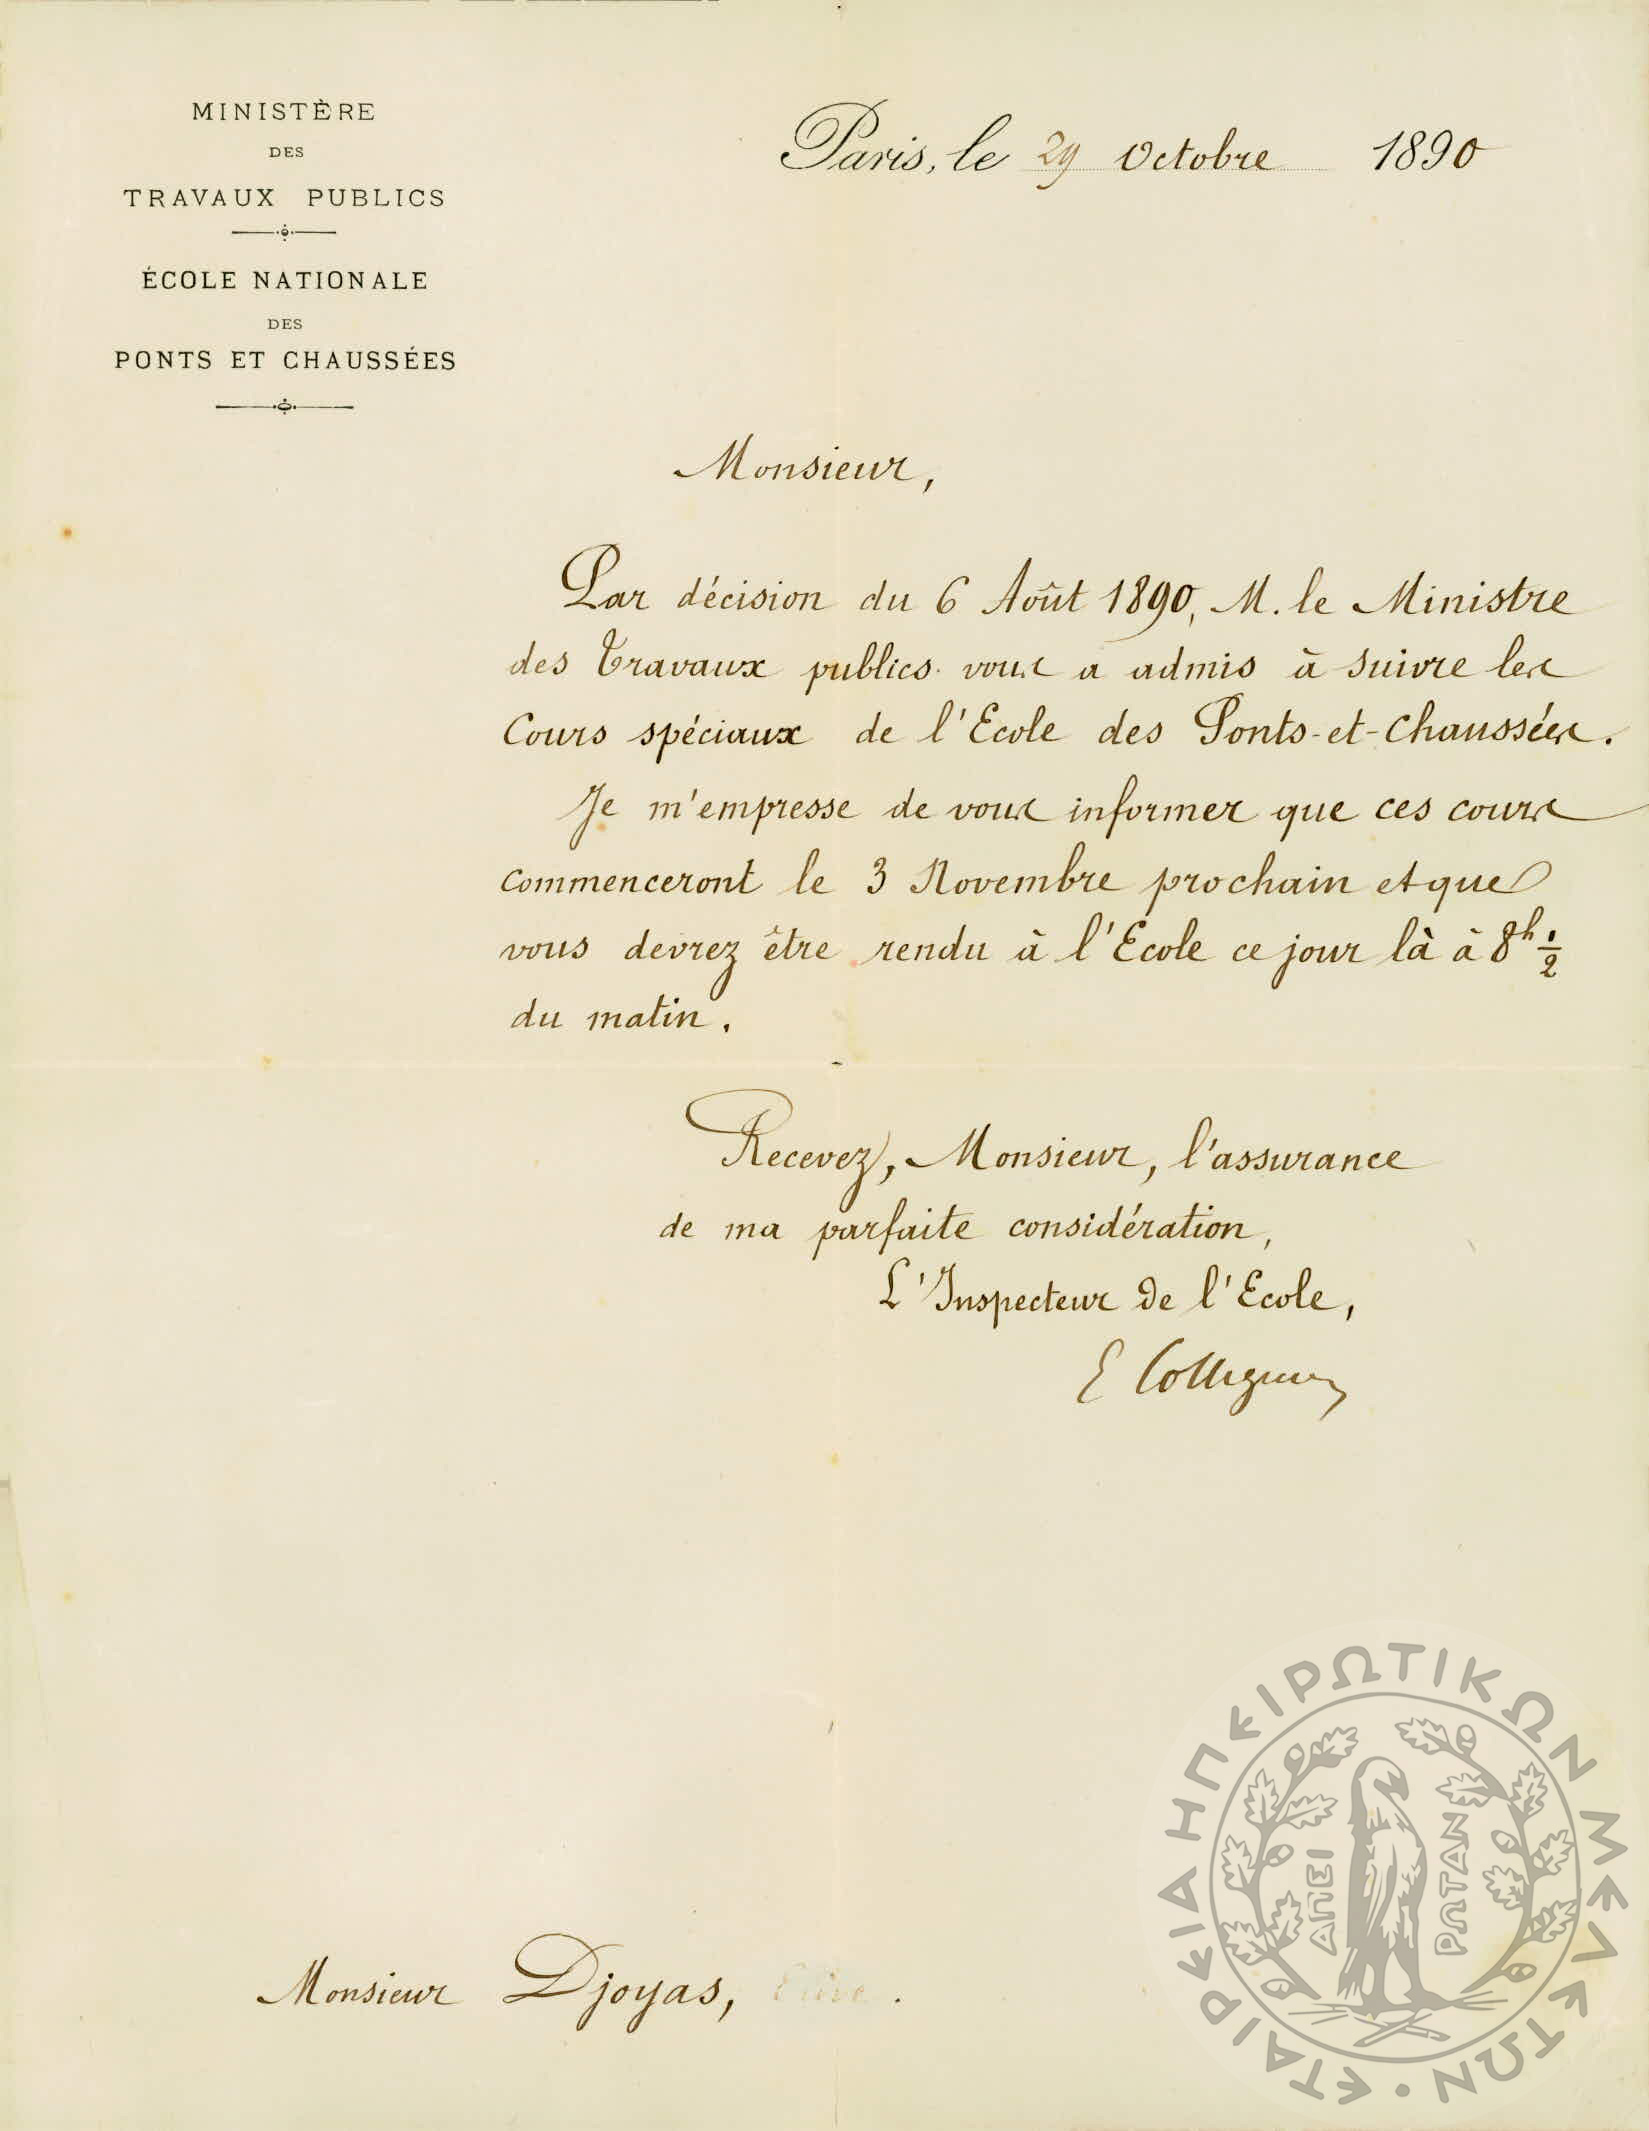 MINISTÈRE
DES
TRAVAUX PUBLICS
ÉCOLE NATIONALE
DES
PONTS ET CHAUSSÉES
Paris, le 29 Octobre 1890
Monsieur,
Par décision du 6 Août 1890, M. le Ministre
des Travaux publics vous a admis à suivre les
Cours spéciaux de l'Ecole des Ponts-et-Chaussées.
Je m'empresse de vous informer que ces cours
commenceront le 3 Novembre prochain et que
vous devrez être rendu à l'Ecole ce jour là à 8h 1/2
du matin.
Recevez, Monsieur, l'assurance
de ma parfaite considération,
L'Inspecteur de l'Ecole,
E Collignon
Monsieur Djoyas,
ΕΤΑΙΡΕΙΑ ΗΠΕΙΡΩΤΙΚΩΝ ΜΕΛΕΤΩΝ
ΑΠΕΙ
ΡΩΤΑΝ